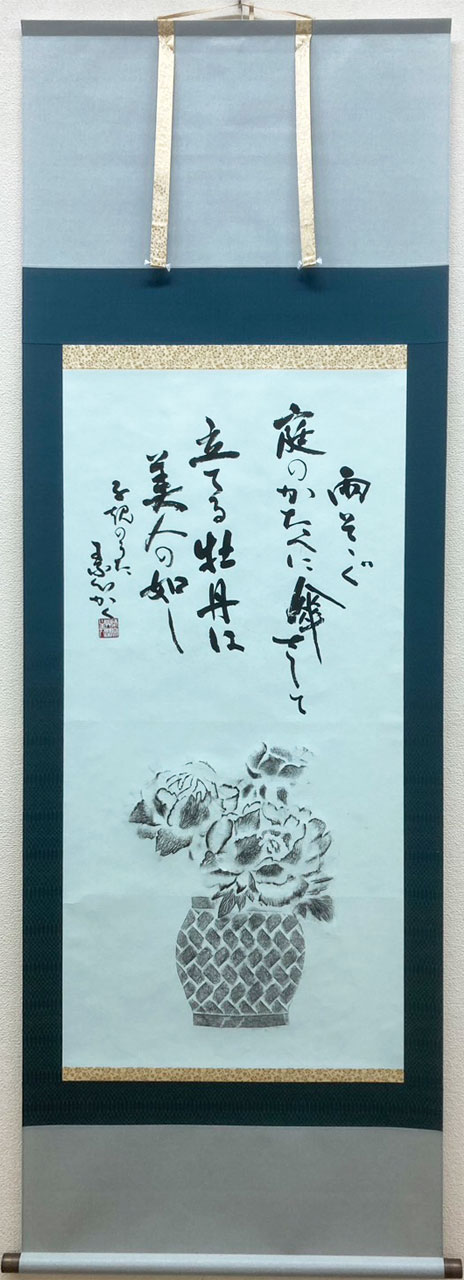 雨そゝぐ
庭のかたへに傘さして
立てる牡丹は
美人の如し
子規のうた
かく